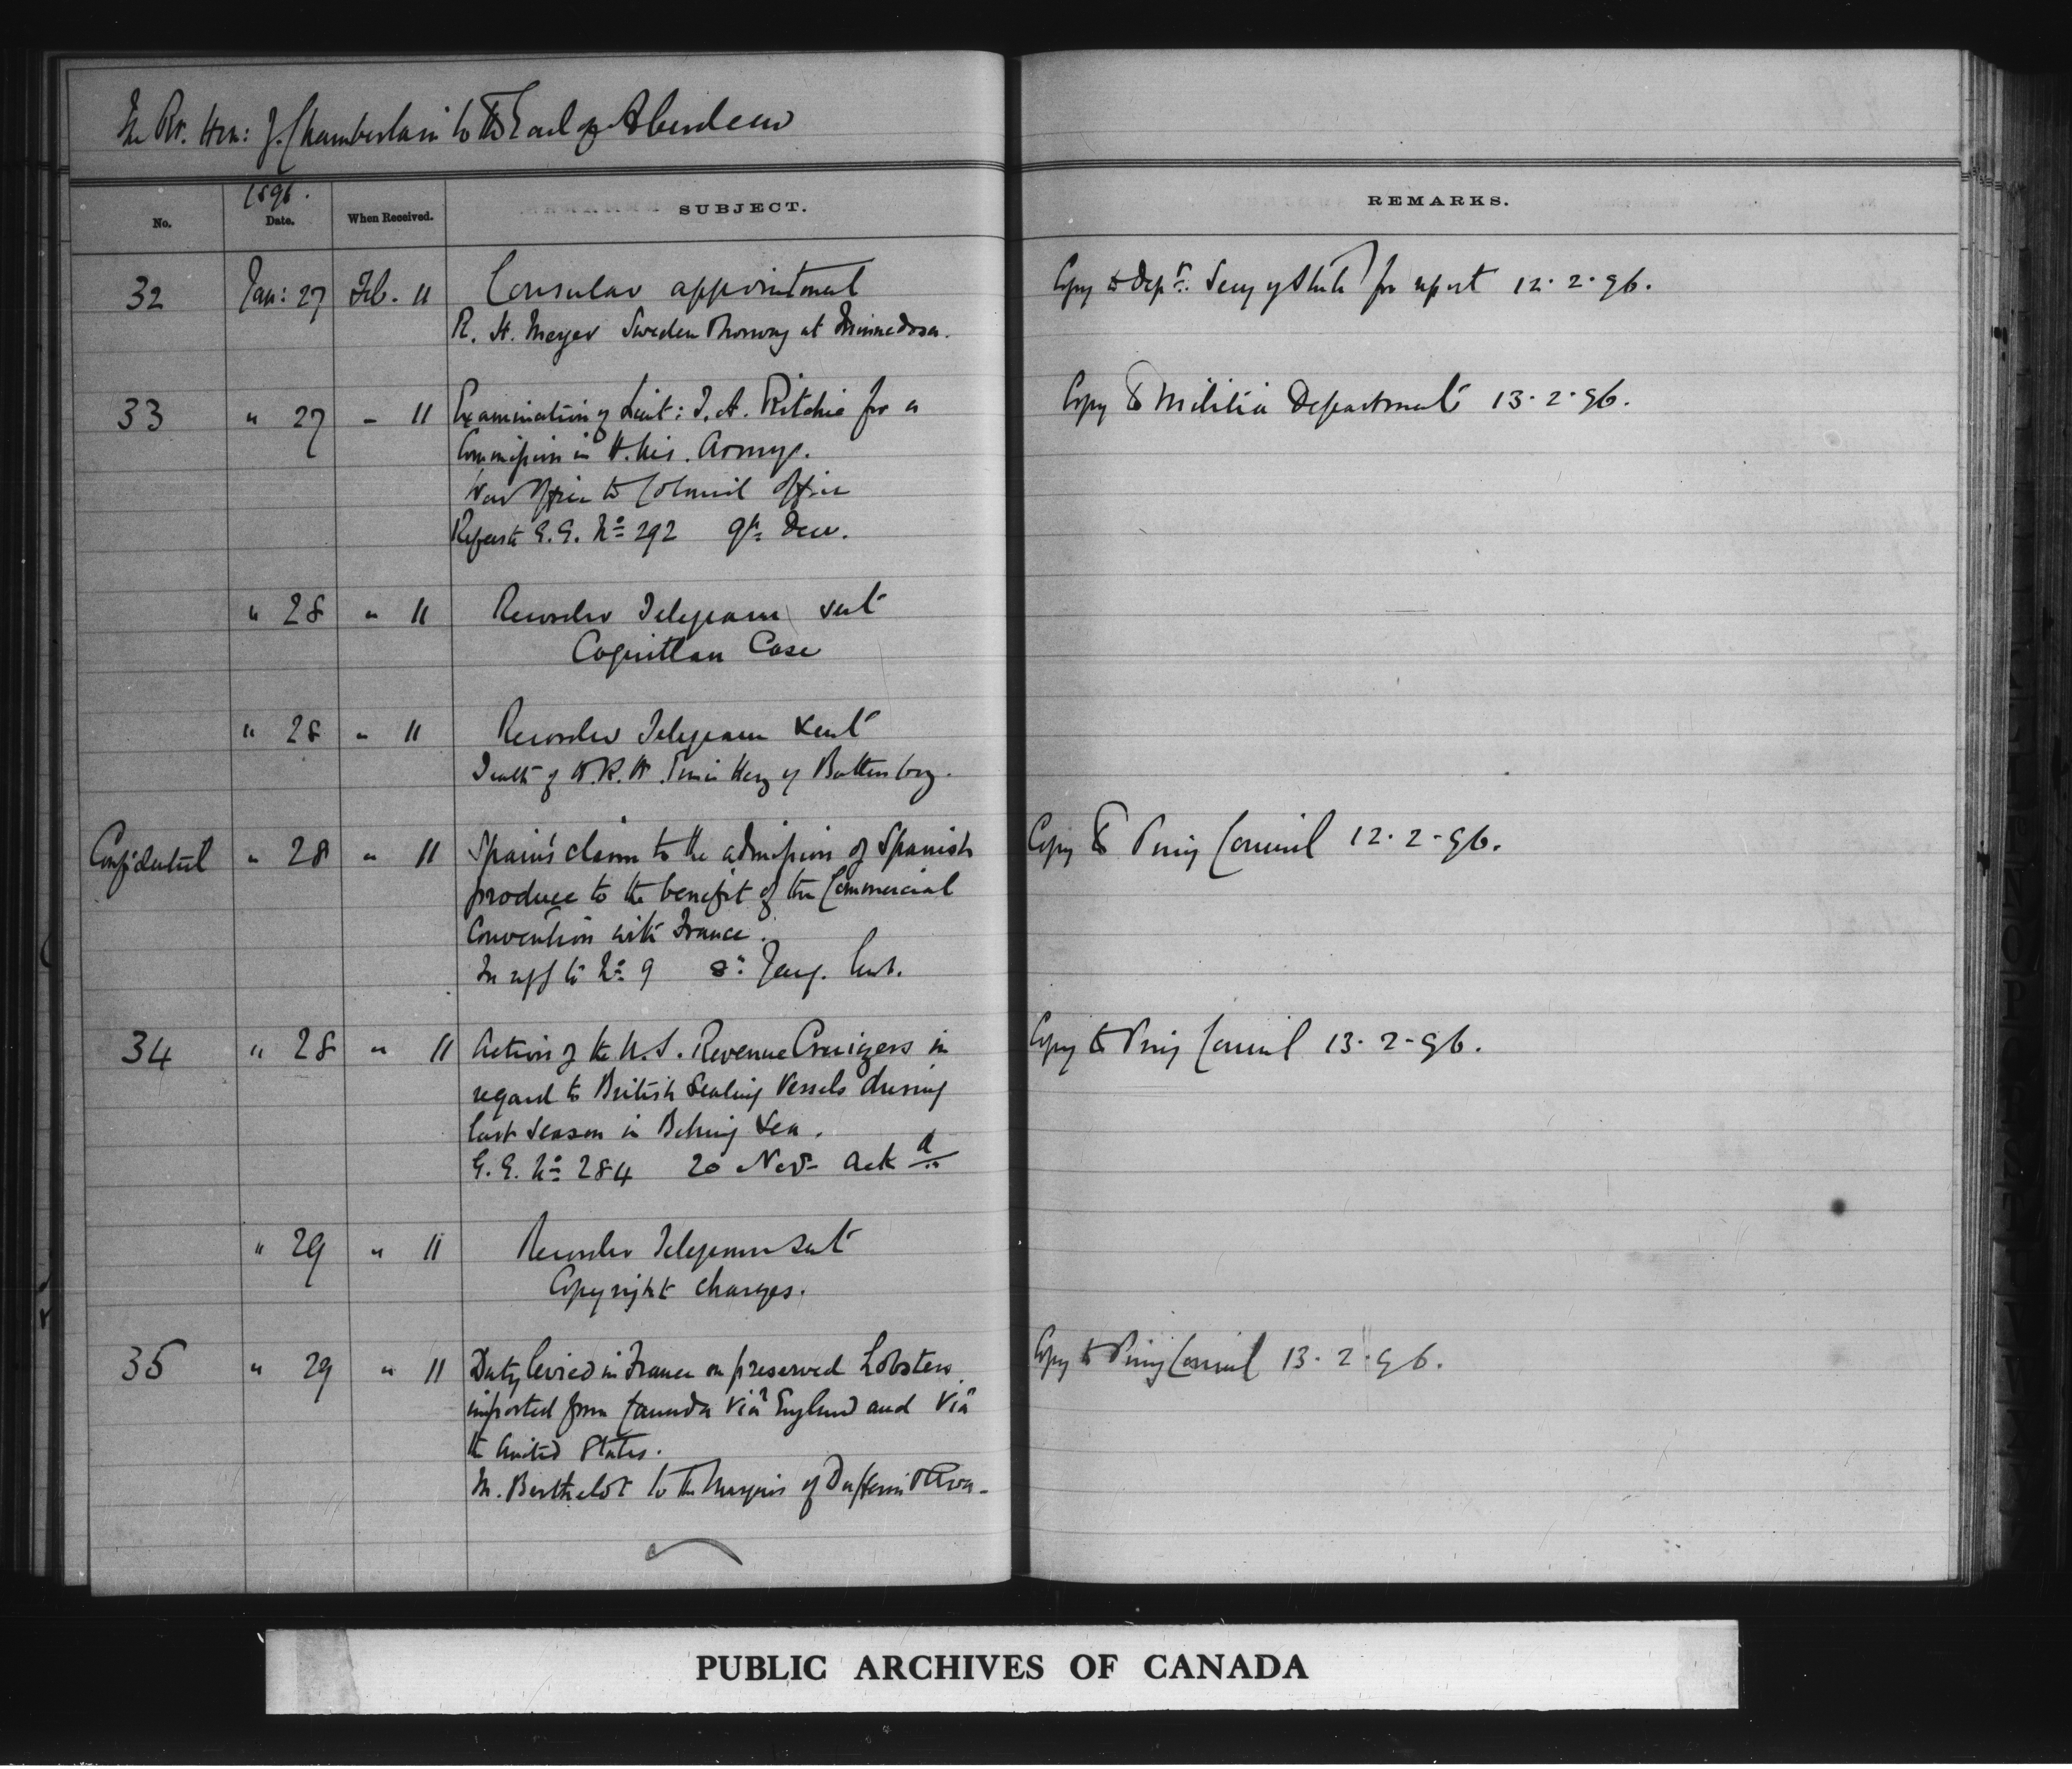 The Rt. Hon: J. Chamberlain to the Earl of Aberdeen
1896.
No. Date. When Received. SUBJECT. REMARKS.
32 Jan: 27 Feb. 11 Consular appointment Copy to Dept. Secy of State for report 12.2.96.
R. H. Meyer Sweden & Norway at Minnedosa.
33 " 27 " 11 Examination of Lieut: T. A. Ritchie for a Copy to Militia Department 13.2.96.
Commission in H. M's. Army.
War Office to Colonial Office
Refers to G.G. No 292 9th Decr.
" 28 " 11 Recorder Telegram sent
Coquitlan Case
" 28 " 11 Recorder Telegram sent
Death of H.R.H. Prince Henry of Battenberg.
Confidential " 28 " 11 Spain's claim to the admission of Spanish Copy to Privy Council 12.2.96.
produce to the benefit of the Commercial
Convention with France.
In ref to No 9 8th Jany.
34 " 28 " 11 Action of the U.S. Revenue Cruizers in Copy to Privy Council 13.2.96.
regard to British Sealing Vessels during
last Season in Behring Sea.
G.G. No 284 20 Nov. Ackd
" 29 " 11 Recorder Telegram sent
Copyright charges.
35 " 29 " 11 Duty levied in France on preserved Lobsters Copy to Privy Council 13.2.96.
imported from Canada viâ England and viâ
the United States.
M. Berthelot to the Marquis of Dufferin & Ava.
PUBLIC ARCHIVES OF CANADA